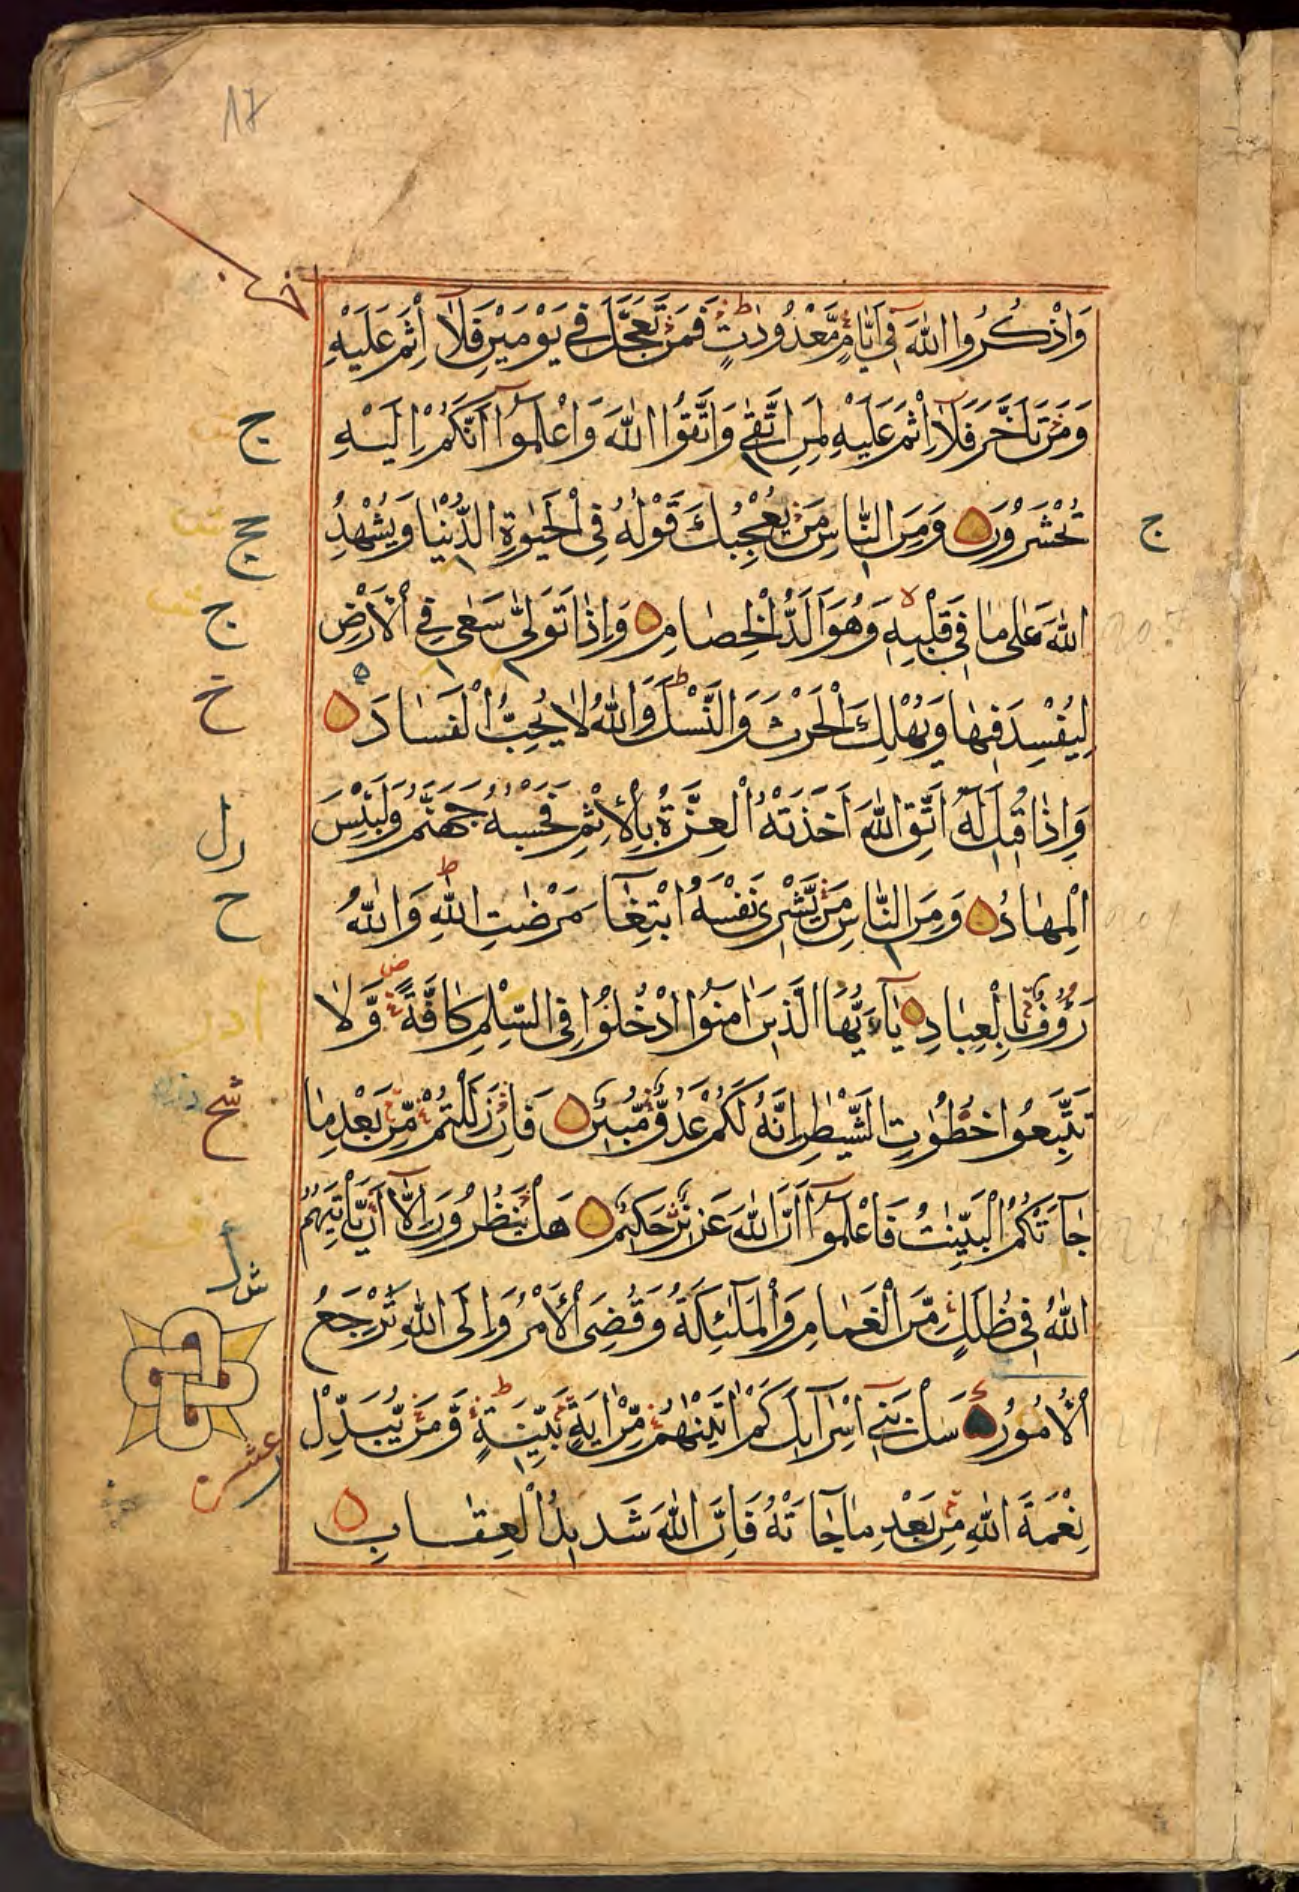 17
وَاذْكُرُوا اللّٰهَ فِي أَيَّامٍ مَّعْدُودٰتٍ فَمَنْ تَعَجَّلَ فِي يَوْمَيْنِ فَلَا إِثْمَ عَلَيْهِ
وَمَنْ تَأَخَّرَ فَلَا إِثْمَ عَلَيْهِ لِمَنِ اتَّقٰى وَاتَّقُوا اللّٰهَ وَاعْلَمُوا أَنَّكُمْ إِلَيْهِ
تُحْشَرُونَ وَمِنَ النَّاسِ مَنْ يُعْجِبُكَ قَوْلُهُ فِي الْحَيٰوةِ الدُّنْيَا وَيُشْهِدُ
اللّٰهَ عَلٰى مَا فِي قَلْبِهِ وَهُوَ أَلَدُّ الْخِصَامِ وَإِذَا تَوَلّٰى سَعٰى فِي الْأَرْضِ
لِيُفْسِدَ فِيهَا وَيُهْلِكَ الْحَرْثَ وَالنَّسْلَ وَاللّٰهُ لَا يُحِبُّ الْفَسَادَ
وَإِذَا قِيلَ لَهُ اتَّقِ اللّٰهَ أَخَذَتْهُ الْعِزَّةُ بِالْإِثْمِ فَحَسْبُهُ جَهَنَّمُ وَلَبِئْسَ
الْمِهَادُ وَمِنَ النَّاسِ مَنْ يَّشْرِي نَفْسَهُ ابْتِغَآءَ مَرْضَاتِ اللّٰهِ وَاللّٰهُ
رَؤُفٌ بِالْعِبَادِ يَآ أَيُّهَا الَّذِينَ اٰمَنُوا ادْخُلُوا فِي السِّلْمِ كَافَّةً وَّلَا
تَتَّبِعُوا خُطُوٰتِ الشَّيْطٰنِ إِنَّهُ لَكُمْ عَدُوٌّ مُّبِينٌ فَإِنْ زَلَلْتُمْ مِّنْ بَعْدِ مَا
جَآءَتْكُمُ الْبَيِّنٰتُ فَاعْلَمُوا أَنَّ اللّٰهَ عَزِيزٌ حَكِيمٌ هَلْ يَنْظُرُونَ إِلَّا أَنْ يَّأْتِيَهُمُ
اللّٰهُ فِي ظُلَلٍ مِّنَ الْغَمَامِ وَالْمَلٰٓئِكَةُ وَقُضِيَ الْأَمْرُ وَإِلَى اللّٰهِ تُرْجَعُ
الْأُمُورُ سَلْ بَنِي إِسْرَآئِيلَ كَمْ اٰتَيْنٰهُمْ مِّنْ اٰيَةٍ بَيِّنَةٍ وَّمَنْ يُّبَدِّلْ
نِعْمَةَ اللّٰهِ مِنْ بَعْدِ مَا جَآءَتْهُ فَإِنَّ اللّٰهَ شَدِيدُ الْعِقَابِ